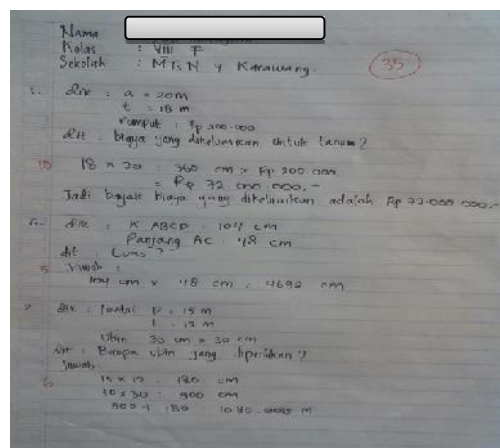 Nama
Kelas : VIII F
Sekolah : MTs N 4 Karawang.
35
dik : a = 20 m
t = 18 m
rumput : Rp 200.000
dit : biaya yang dikeluarkan untuk
10
= Rp 72.000.000,-
Jadi biaya yang dikeluarkan adalah Rp 72.000.000,-
dik : K ABCD : 104 cm
Panjang AC : 48 cm
dit : Luas ?
5 Jawab :
cm x 48 cm : 4692 cm
7 dik : lantai p = 15 m
l = 12 m
Ubin 30 cm x 30 cm
dit : Berapa ubin yang diperlukan ?
Jawab :
15 x 12 : 180 cm
30 x 30 : 900 cm